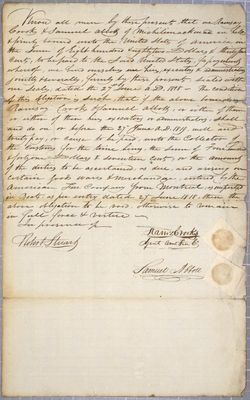 Know all men by these present that we Ramsay
Crooks & Samuel Abbott of Michilimackinac in the
firmly bound unto the United States of America
in the Sum of Eight hundred
to be paid to the Said United States, for payment
whereof, we bind ourselves our heirs, executors & administrators
jointly & severally firmly by these presents, sealed with
our seals, dated the 27th June A.D. 1818 – The condition
of this obligation is Such, that if the above bounden
Ramsay Crooks & Samuel Abbott, or either of them
or either of their heirs executors or administrators, Shall
and do on or before the 27th A.D. 1819 well and
truly pay, or cause to be paid unto the Collector of
the Customs for the time being, the Sum of Four hundred
& forty one Dollars & seventeen Cents, or the amount
of the duties to be ascertained as due, and arising on
certain goods wares & merchandize entered by the
American Fur Company from Montreal; imported
in Boats as per entry dated 27th June 1818, then the
above obligation to be void, otherwise to remain
in full force & virtue
In presence of
Robert Stuart
Ramsay Crooks
Agent Am Fur Co
Samuel Abbott